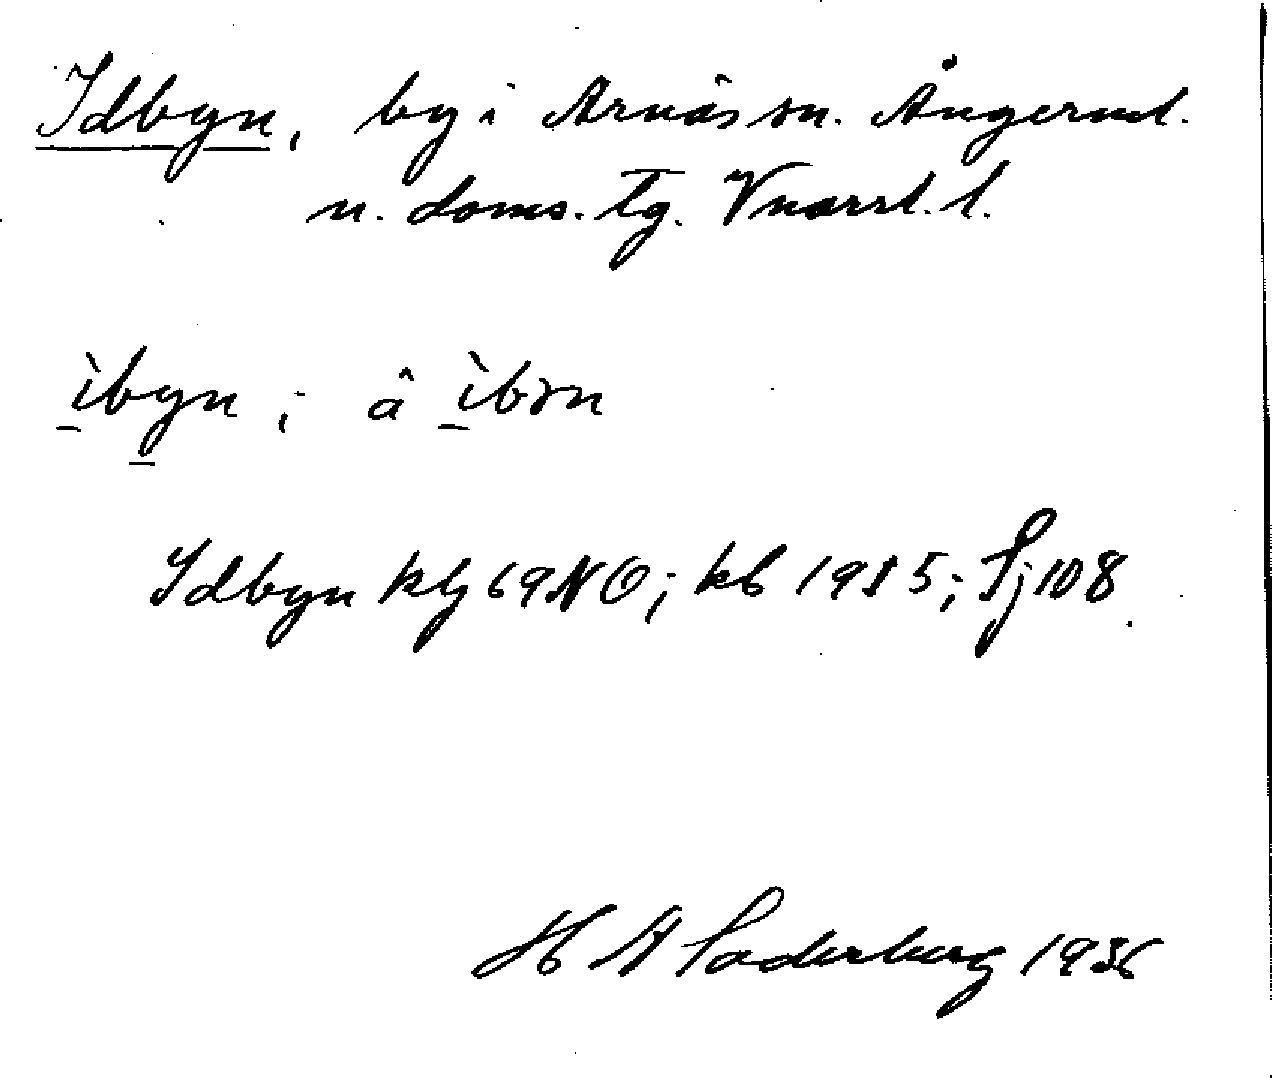 Idbyn, by i Arnäs sn. Ångerml.
n. doms. tg. Vnorrl. l.
ìbyn ; â ìbɤn
Idbyn kbg 69 NO; kb 1915; Sj 108.
H A Söderberg 1936